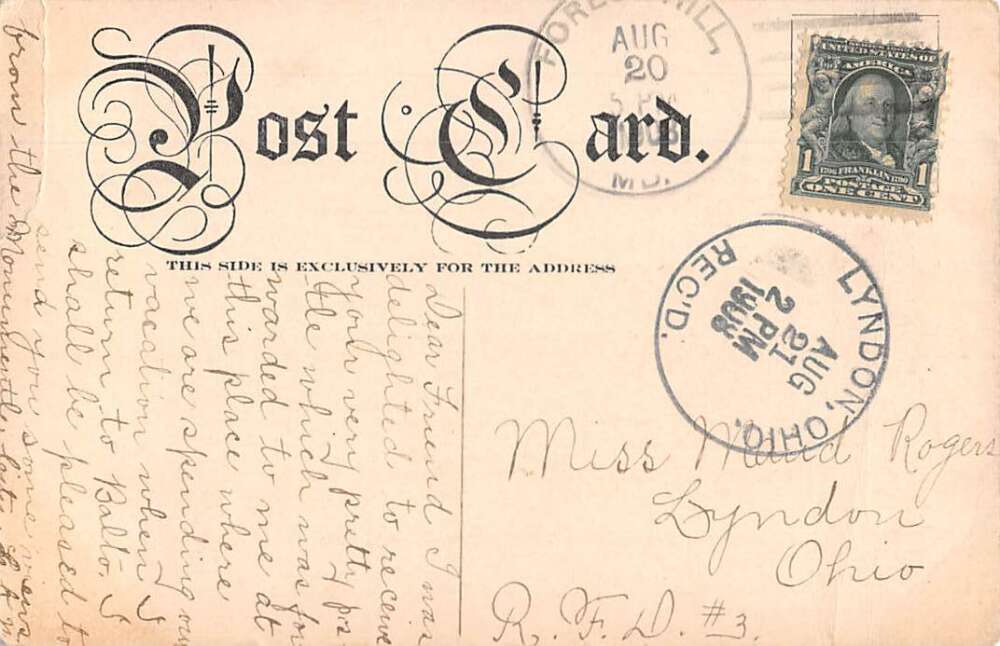 Post Card.
THIS SIDE IS EXCLUSIVELY FOR THE ADDRESS
FOREST HILL,
AUG
20
5 PM
MD.
UNITED STATES OF
AMERICA
1706 FRANKLIN 1790
POSTAGE
1 ONE CENT 1
LYNDON, OHIO.
AUG
21
2 PM
1908
REC'D.
Dear Friend I was
delighted to receive
your very pretty pos
tle which was for
warded to me at
this place where
we are spending our
vacation when I
return to Balto. I
shall be pleased to
send you some views
from the Monumental City
Miss Maud Rogers
Lyndon
Ohio
R. F. D. #3.